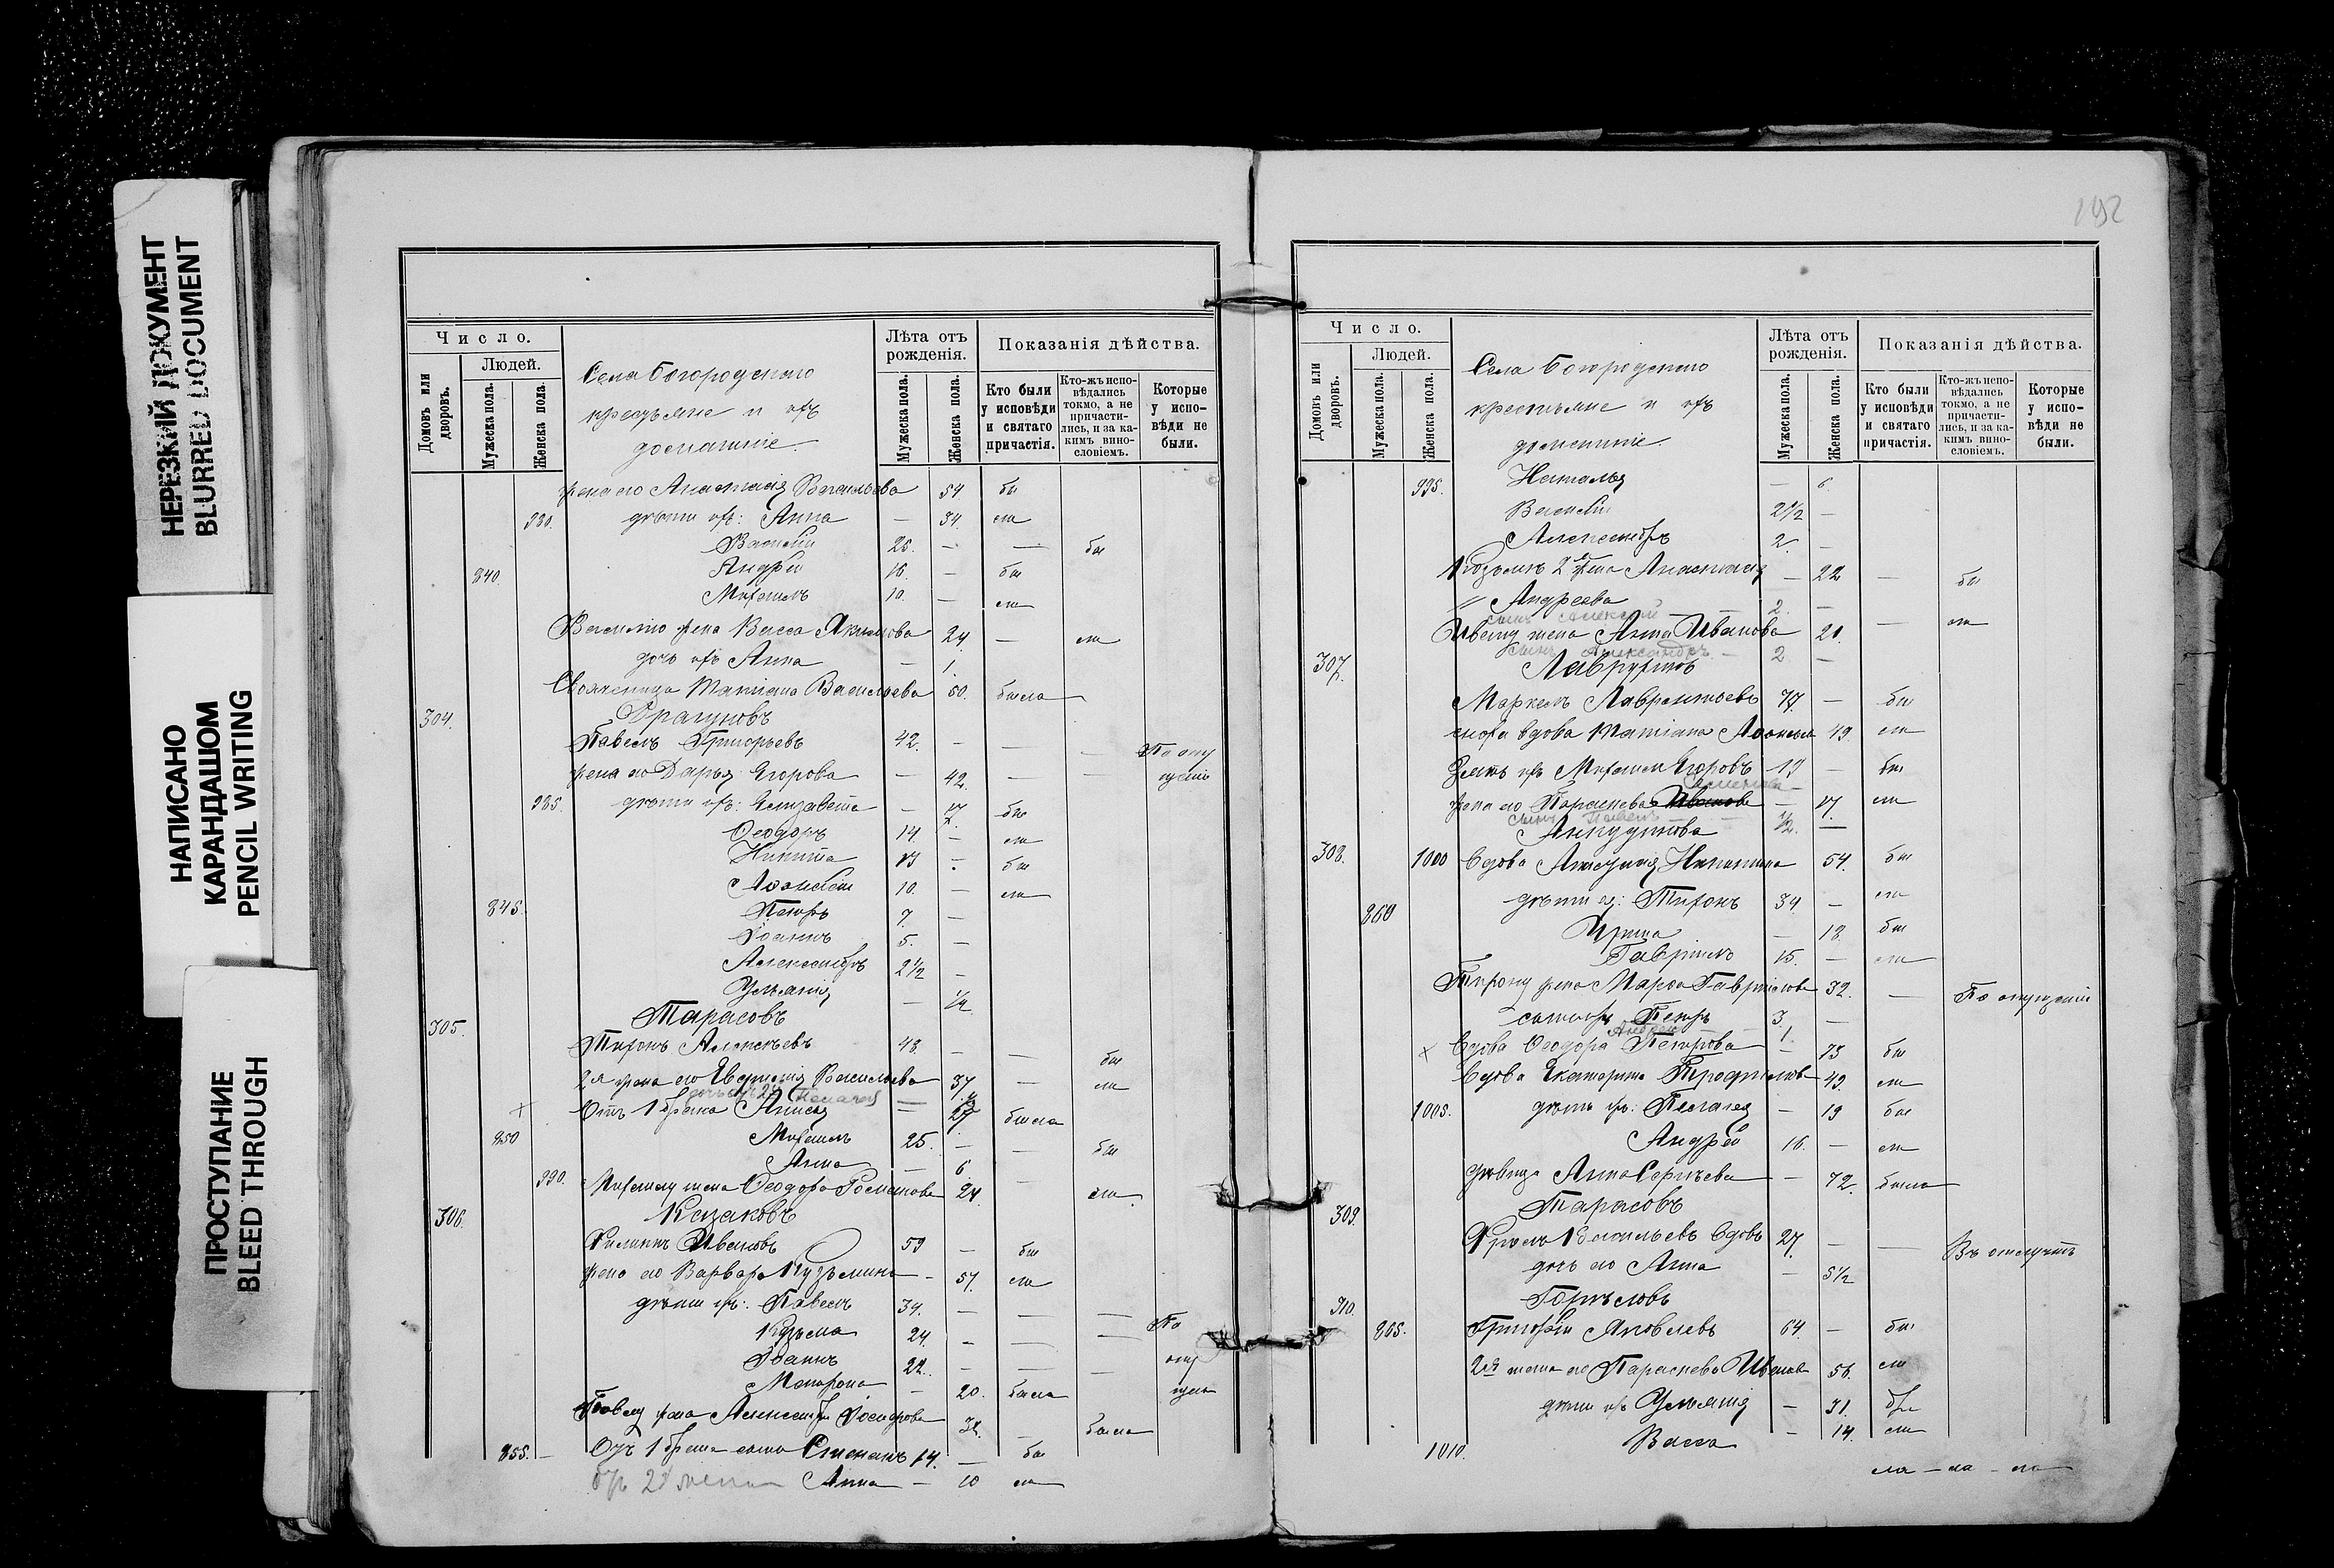 НЕРЕЗКИЙ ДОКУМЕНТ
BLURRED DOCUMENT
НАПИСАНО
КАРАНДАШОМ
PENCIL WRITING
ПРОСТУПАНИЕ
BLEED THROUGH
Число.
Людей.
Домовъ или дворовъ.
Мужеска пола.
Женска пола.
Села Богородскаго
крестьяне и ихъ
домашніе.
Лѣта отъ рожденія.
Мужеска пола.
Женска пола.
Показанія дѣйства.
Кто были у исповѣди и святаго причастія.
Кто-жъ исповѣдались токмо, а не причастились, и за какимъ винословіемъ.
Которые у исповѣди не были.
жена его Анастасія Васильева 54 бы
980. дѣти ихъ: Анна — 34. ли
Василій 25. — — бы
840. Андрей 16. — бы
Михаилъ 10. — ли
Василію жена Васса Акимова 24 — ли
дочь ихъ Анна — 1.
Свояченица Татіана Васильева 50. была
304. Драгуновъ
Павелъ Григорьевъ 42. — — — По опу
жена его Дарья Егорова — 42. — — щенію
985. дѣти ихъ: Елизавета — 17. бы
Ѳеодоръ 14. — ли
Никита — бы
Аѳанасій 10. — ли
845. Петръ 7. —
Іоаннъ 5. —
Александръ 2 1/2 —
Ульянія — 1/2
305. Тарасовъ
Тихонъ Алексѣевъ 48. — — бы
2я жена его Евдокія Васильева 37. — ли
+ Отъ 1 брака Анисья — была
850 Михаилъ 25. — — бы
Анна — 6.
990. Михаилу жена Ѳеодора Романова 24. — ли
306. Казаковъ
Филиппъ Ивановъ 59 — бы
жена его Варвара Кузьмина — 57. ли
дѣти ихъ: Павелъ 34. — — — По
Кузьма 24. — — — опу
Іоаннъ 22. — — — щен
Матрона — 20. была
Павлу жена Александра — была
855. — Отъ 1 брака сынъ Степанъ 14. — бы
Анна — 10 ли
192
Число.
Людей.
Домовъ или дворовъ.
Мужеска пола.
Женска пола.
Села Богородскаго
крестьяне и ихъ
домашніе.
Лѣта отъ рожденія.
Мужеска пола.
Женска пола.
Показанія дѣйства.
Кто были у исповѣди и святаго причастія.
Кто-жъ исповѣдались токмо, а не причастились, и за какимъ винословіемъ.
Которые у исповѣди не были.
995. Наталья — 6.
Василій 2 1/2 —
Александръ 2. —
2 жена Анастасія — 22 — бы
Андреева
сынъ Алексѣй 2. —
Ивану жена Анна Иванова 21. — ли
сынъ Александръ — 2 —
307.
Маркелъ Лаврентьевъ 77. — бы
сноха вдова Татіана 49 ли
Зять ихъ Михаилъ Егоровъ 19 — бы
жена его Параскева Иванова — 17. ли
сынъ Павелъ 1/2. —
Анкудинова
308. 1000 Вдова Никитина 54. бы
860 дѣти ея: Тихонъ 34. — ли
Ирина — 18. бы
Гавріилъ 15. — ли
Тихону жена Марѳа Гавріилова 32. — По опущенію
сынъ ихъ Петръ 3. —
Андрей 1.
+ Вдова Ѳеодора Петрова — 73 бы
Вдова Екатерина Трофимова 49. ли
1005. дѣти ихъ: Пелагея — 19 бы
Андрей 16. — ли
дѣвица Анна Сергѣева — 72. была
309. Тарасовъ
Фролъ Васильевъ вдовъ 27. — — Въ отлучкѣ
дочь его Анна — 5 1/2
310. Горѣловъ
865. Григорій Яковлевъ 64. — бы
2я жена его Параскева Иванова 56. ли
дѣти ихъ Ульянія — 31. бы
1010. Васса — 14. ли
ла — ла — ли